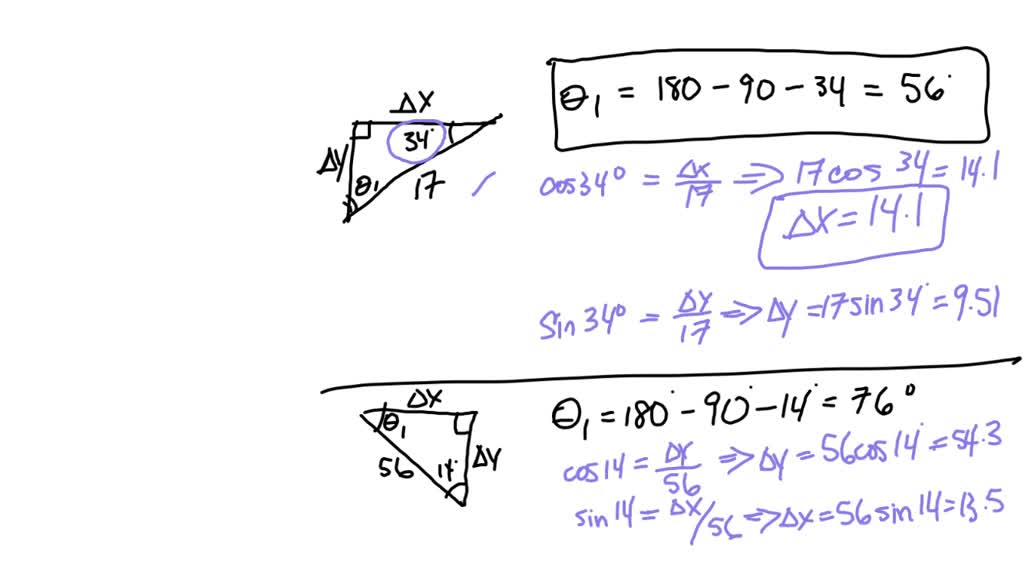 ΔX
34°
ΔY
θ₁
17
θ₁ = 180 - 90 - 34 = 56°
cos34° = ΔX/17 => 17cos 34 = 14.1
ΔX = 14.1
Sin34° = ΔY/17 => ΔY = 17sin34° = 9.51
ΔX
θ₁
56
14°
ΔY
θ₁ = 180° - 90° - 14° = 76°
cos14 = ΔY/56 => ΔY = 56cos14° = 54.3
sin14 = ΔX/56 => ΔX = 56sin14 = 13.5